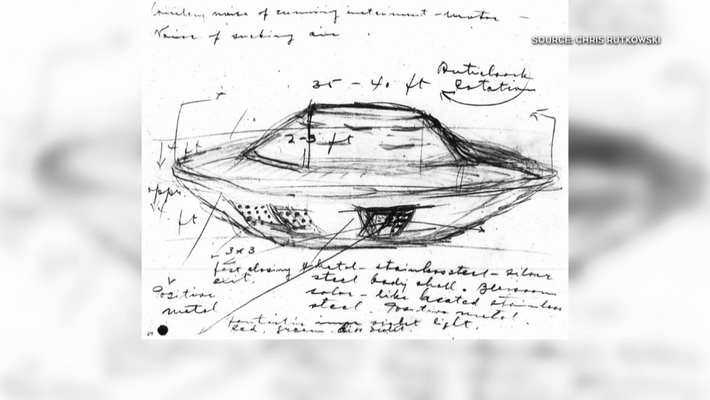 noise of running instrument - motor -
Noise of sucking air
SOURCE: CHRIS RUTKOWSKI
35 - 40 ft
Anticlock
Rotation
2-3 ft
ft
appr.
ft
3x3
fast closing
exit.
Positive
metal
metal - stainless steel - silver
steel body shell.
color - like heated stainless
steel. Positive metal.
fantastic inner light.
Red, green, blue